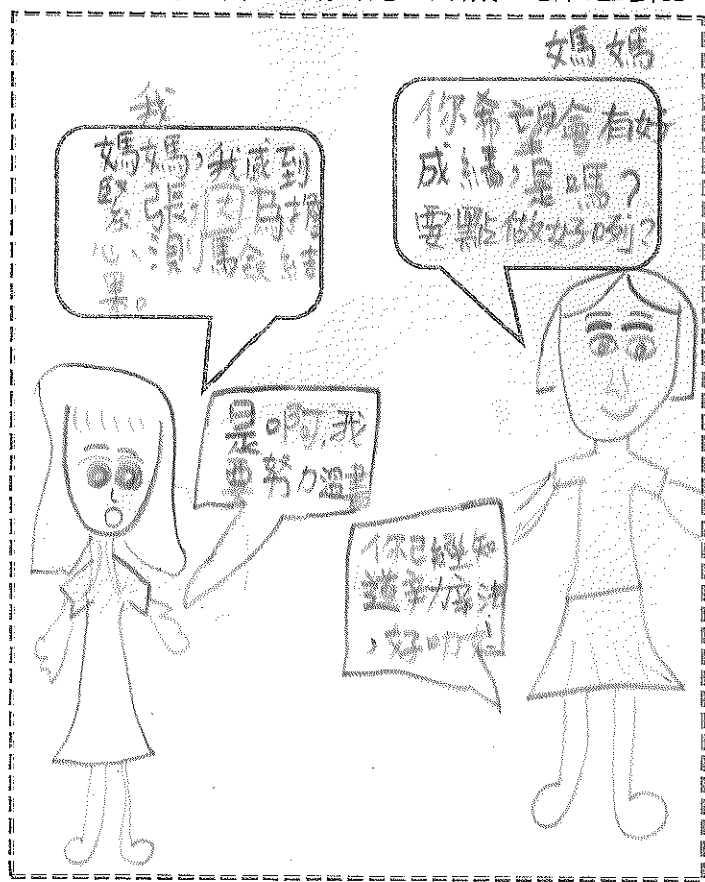 我
媽媽,我感到
緊張,因為擔
心測驗結
果。
媽媽
你希望會有好
成績,是嗎?
要點做好呢?
是啊,我
要努力溫書
你已經知
道努力方法
,好叻